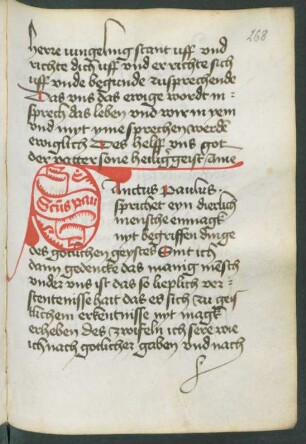 268
herre iungeling stant uff und
richte dich uff und er richte sich
uff unde begunde zu sprechende
Das uns das ewige wordt in
sprech das leben und wir in yem
und myt yme sprechen werde
ewiglich Des helff uns got
der vatter sone heilig geist ame
Sctus pau
Sanctus Paulus
sprichet eyn dierlich
mensche enmagk
nyt begriffen dinge
des gotlichen geystes Sint ich
dann gedencke das manig mesch
under uns ist das so lieplich ver
stentenisse hait das es sich zu geis
lichem erkentnisse nyt magk
erheben des zwifeln ich sere wie
ich nach gotlicher gaben und nach